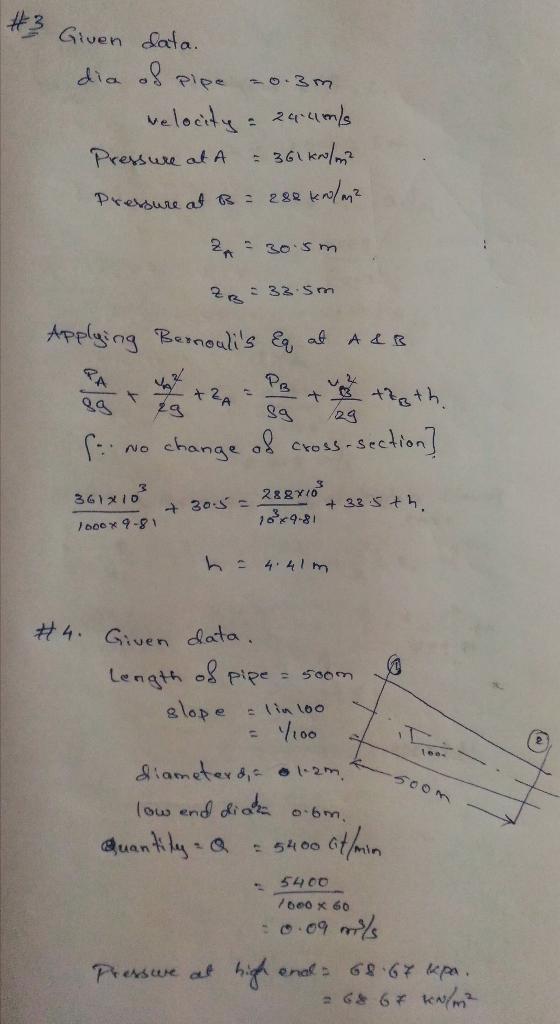 #3 Given data.
dia of pipe = 0.3m
velocity = 24.4m/s
Pressure at A = 361 kN/m²
Pressure at B = 288 kN/m²
z_A = 30.5m
z_B = 33.5m
Applying Bernouli's Eq at A & B
P_A/ρg + V_A²/2g + z_A = P_B/ρg + V_B²/2g + z_B + h.
[∵ No change of cross-section]
361×10³/1000×9.81 + 30.5 = 288×10³/10³×9.81 + 33.5 + h.
h = 4.41m
#4. Given data.
Length of pipe = 500m
slope = 1in100
= 1/100
diameter d₁ = 1.2m.
low end dia d₂ = 0.6m.
Quantity = Q = 5400 lit/min
= 5400/1000×60
= 0.09 m³/s
Pressure at high end = 68.67 kpa.
= 68.67 kN/m²
1
2
1
100
500m